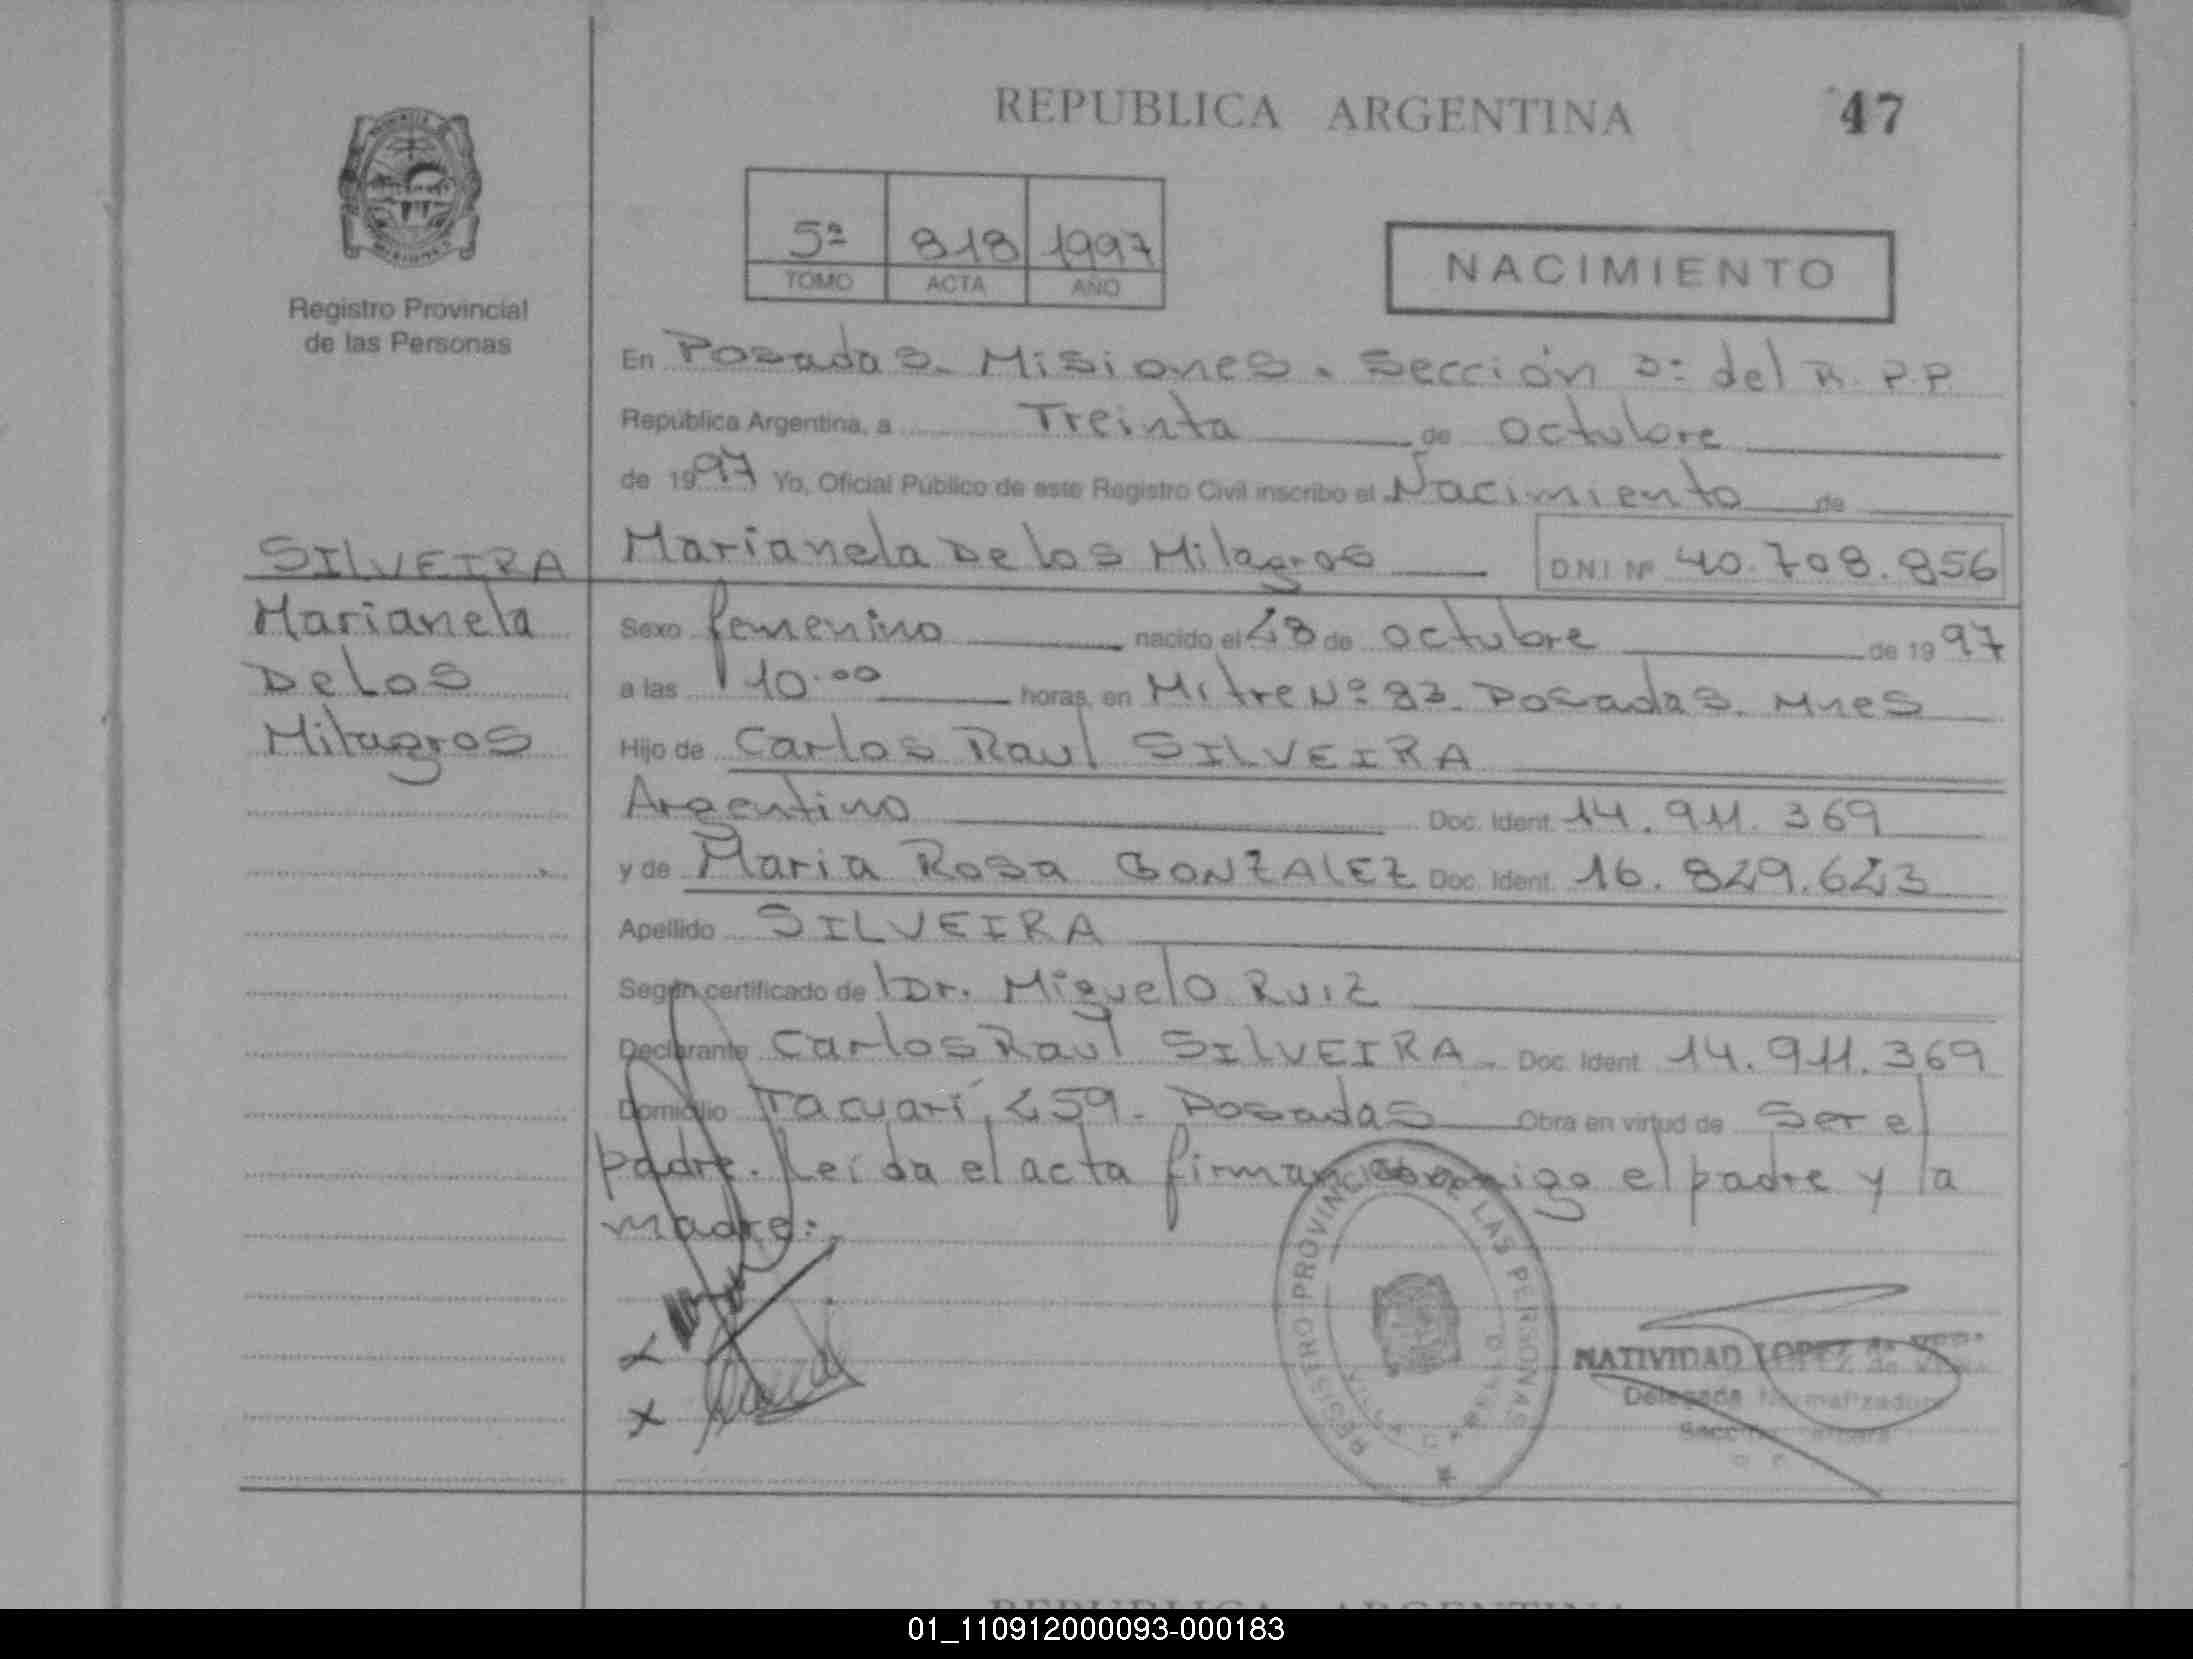 REPUBLICA ARGENTINA
47
5ª 818 1997
TOMO ACTA AÑO
NACIMIENTO
Registro Provincial
de las Personas
En Posadas. Misiones. Sección 3ª del R.P.P.
República Argentina, a Treinta de octubre
de 1997 Yo, Oficial Público de este Registro Civil inscribo el Nacimiento de
SILVEIRA
Marianela De los Milagros
DNI Nº 40.708.856
Marianela
De Los
Milagros
Sexo femenino nacido el 28 de octubre de 1997
a las 10.00 horas, en Mitre Nº 83. Posadas. Mnes
Hijo de Carlos Raul SILVEIRA
Argentino Doc. Ident. 14.911.369
y de Maria Rosa GONZALEZ Doc. Ident. 16.829.623
Apellido SILVEIRA
Según certificado de Dr. Miguel O Ruiz
Declarante Carlos Raul SILVEIRA. Doc. Ident. 14.911.369
Domicilio Tacuarí 259. Posadas Obra en virtud de ser el
padre. Leída el acta firman conmigo el padre y la
madre:
REGISTRO PROVINCIAL DE LAS PERSONAS
NATIVIDAD LOPEZ de
Delegada Normalizadora
REPUBLICA ARGENTINA
01_110912000093-000183